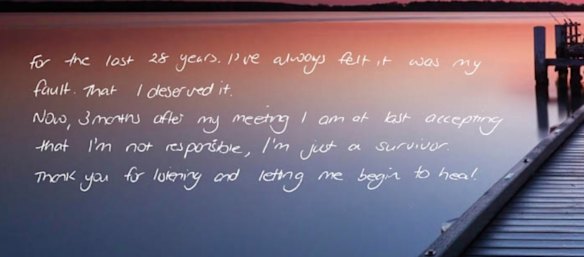 For the last 28 years. I've always felt it was my
fault. That I deserved it.
Now, 3 months after my meeting I am at last accepting
that I'm not responsible, I'm just a survivor.
Thank you for listening and letting me begin to heal.